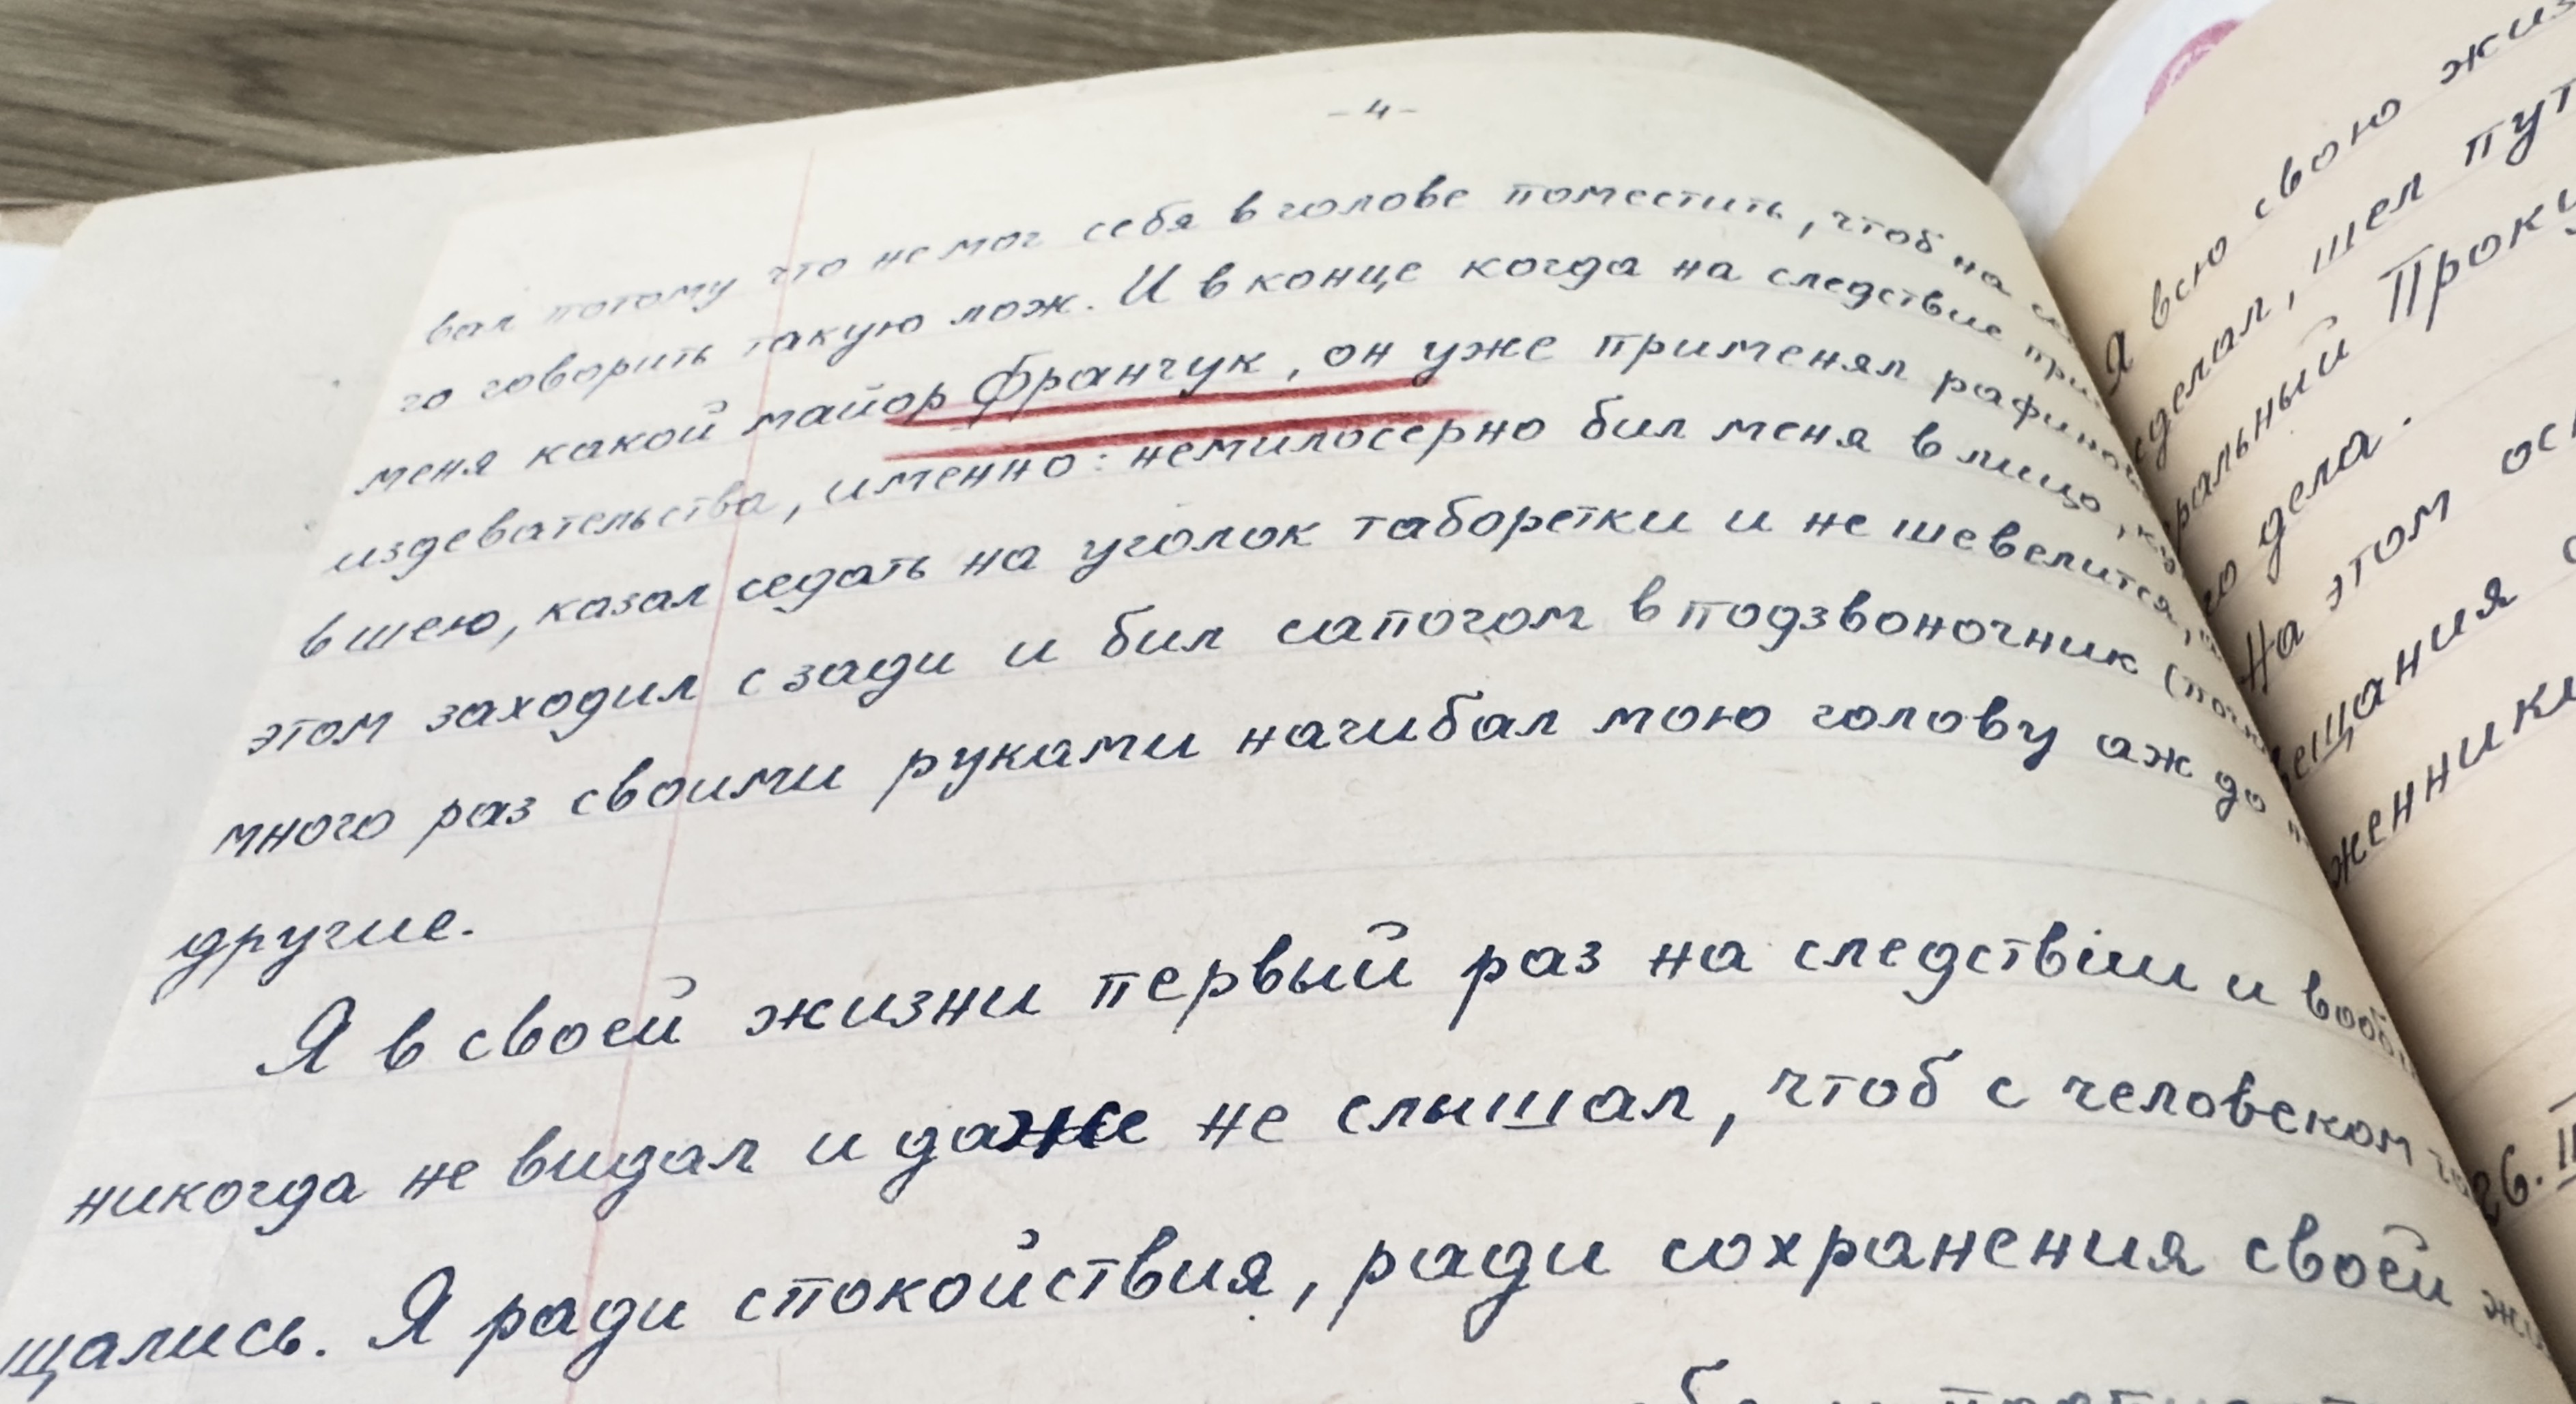 - 4 -
вал потому что не мог себя в голове поместить, чтоб на
го говорить такую лож. И в конце когда на следствие
меня какой майор Франчук, он уже применял
издевательства, именно: немилосерно бил меня в лицо,
в шею, казал седать на уголок таборетки и не шевелится,
этом заходил с зади и бил сапогом в подзвоночник
много раз своими руками нагибал мою голову аж до
другие.
Я в своей жизни первый раз на следствіи и
никогда не видал и даже не слышал, чтоб с человеком
щались. Я ради спокойствия, ради сохранения своей
Я всю свою
сделал, шел
дела.
На этом
26.